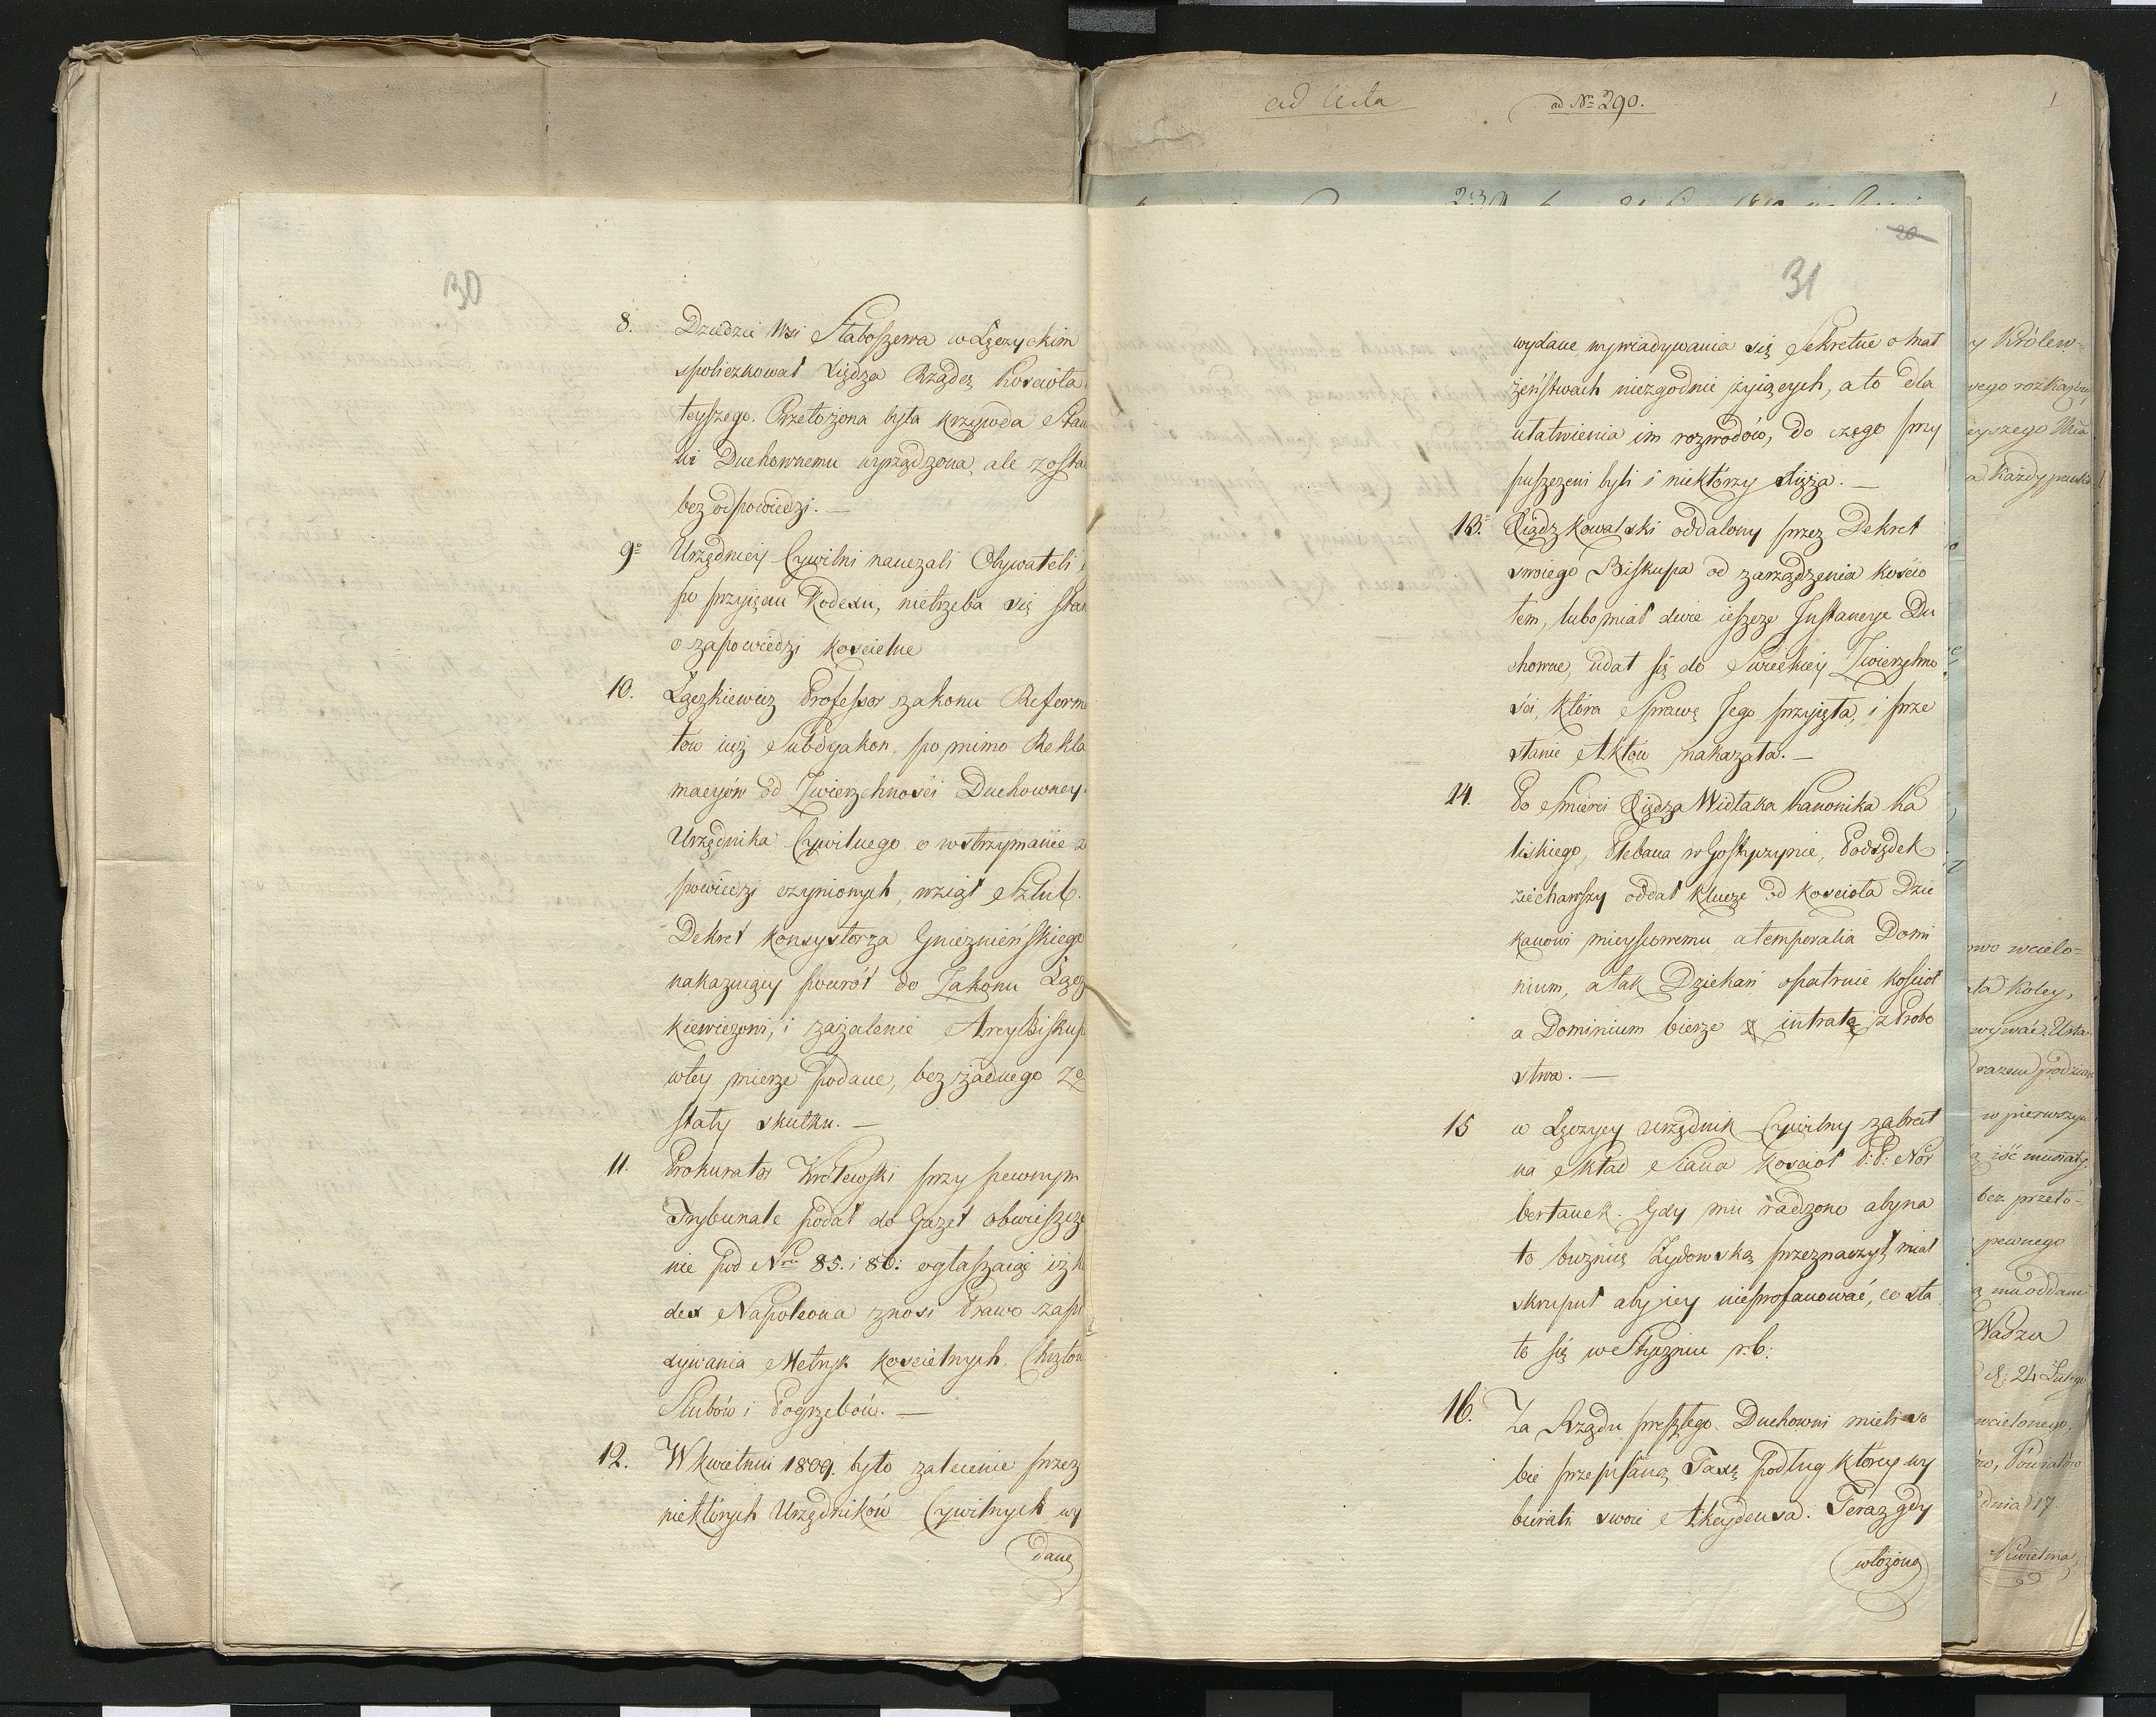 ad Acta
ad Nr 290.
1
30
8. Dziedzic Wsi Słaboszewa w Łęczyckim
spoliczkował Xiędza Rządcę Kościoła
teyszego. Przełożona była krzywda Stan
wi Duchownemu wyrządzona, ale zosta
bez odpowiedzi. —
9o Urzędnicy Cywilni nauczali Obywateli
po przyięciu Kodexu, nietrzeba się star
o zapowiedzi kościelne
10. Łączkiewicz Professor zakonu Reform
tów iuż Subdyakon, pomimo Rekla
macyów od Zwierzchności Duchowney
Urzędnika Cywilnego o wstrzymanie z
powiedzi czynionych, wziął Szlub.
Dekret Konsystorza Gnieznieńskiego
nakazuiący powrót do Zakonu Łącz
kiewiczowi, i zażalenie ArcyBiskup
wtey mierze podane, bez żadnego zo
stały skutku. —
11. Prokurator Królewski przy pewnym
Trybunale podał do Gazet obwieszcze
nie pod Nro 85. i 86: ogłaszaiąc iż K
dex Napoleona znosi Prawo zapi
sywania Metryk kościelnych, Chrztów
Slubów i Pogrzebów. —
12. W kwietniu 1809. było zalecenie przez
niektórych Urzędników Cywilnych wy
dane
20
31
wydane, wywiadywania się Sekretne o Mał
żeństwach niezgodnie żyiących, a to dla
ułatwienia im rozwodów, do czego przy
puszczeni byli i niektórzy Xięża. —
13. Xiądz Kowalski oddalony przez Dekret
swoiego Biskupa od zarządzenia kościo
łem, lubo miał dwie ieszcze Instancye Du
chowne, udał się do Swieckiey Zwierzchno
ści, która Sprawę Jego przyięła, i prze
słanie Aktów nakazała. —
14. Po Smierci Xiędza Widłaka Kanonika Ka
liskiego, Plebana w Gostyczynie, Podsędek
ziechawszy oddał klucze od kościoła Dzie
kanowi mieyscowemu, a temporalia Domi
nium, a tak Dziekan opatruie kościoł
a Dominium bierze intratę z Probo
stwa. —
15 w Łęczycy urzędnik Cywilny zabrał
na Skład Siana Kościoł P:P: Nor
bertanek. Gdy mu radzono aby na
to buznicę Zydowską przeznaczył, miał
skrupuł aby iey nieprofanować, co sta
ło się w Styczniu r.b:
16. Za Rządu preszłego Duchowni mieli so
bie przepisaną Taxę podług którey wy
bierali swoie Akcydensa. Teraz gdy
włożona
y Królew=
wego rozkazu
eyszego Mia
a Każdy punkt
owo wcielo=
ta Koley,
wywać. Usta
razem podzia
w pierwszym
ą iść musiały
bez przeło=
pewnego
ą mu oddani
Wadzu
d: 24 Lutego
wcielonego,
ów, Powiatów
dnia 17
Kwietnia,